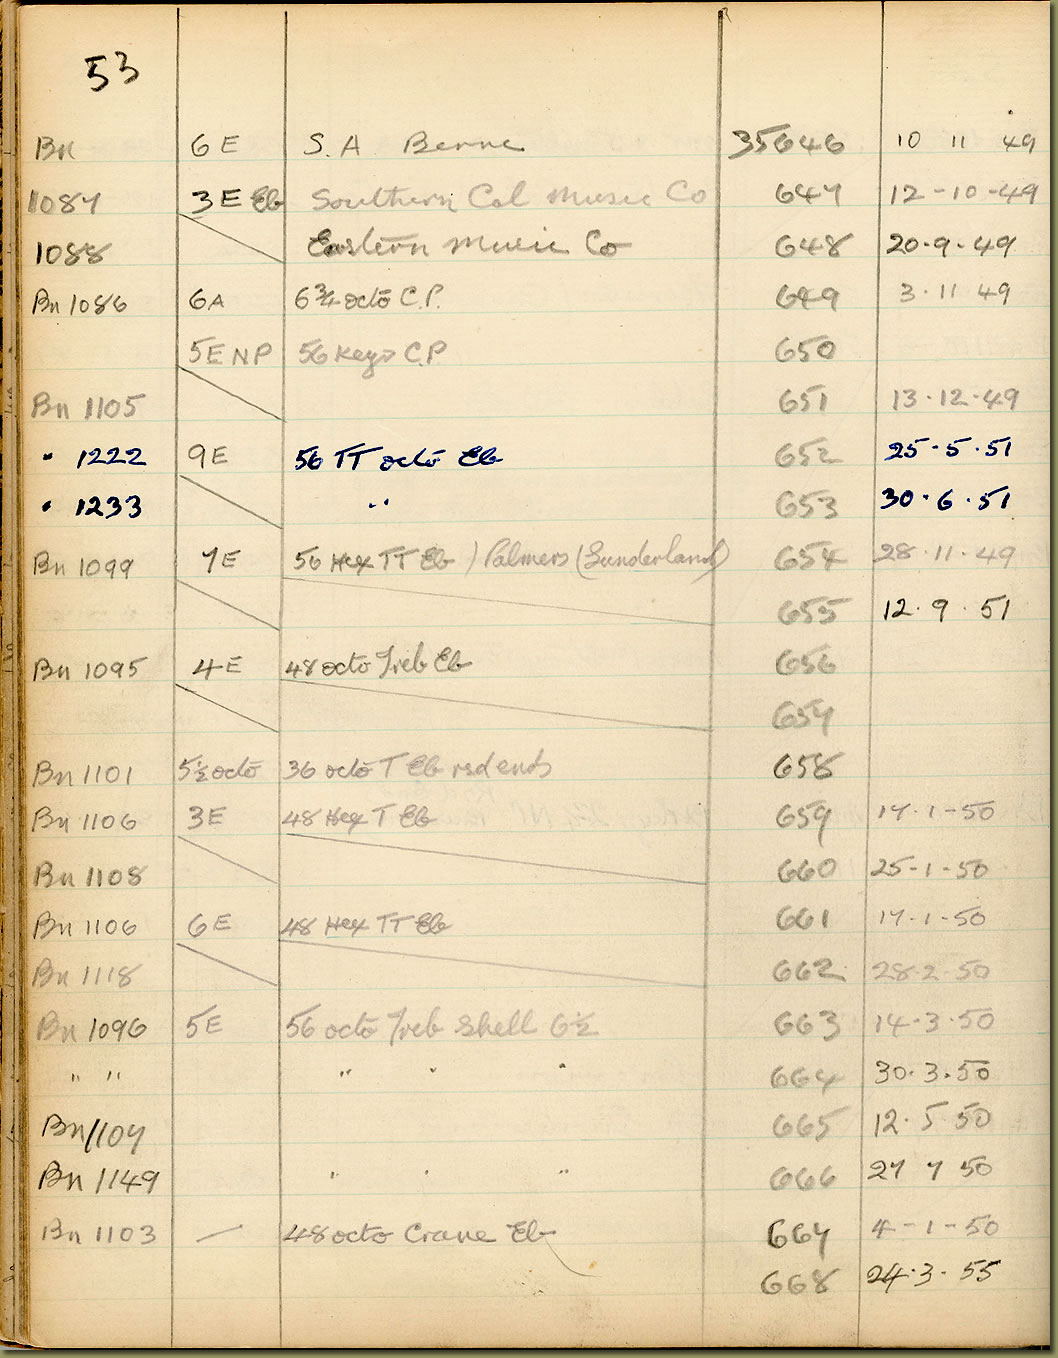 53
Bn 6E S.A Berne 35646 10 11 49
1087 3E Eb Southern Cal Music Co 647 12-10-49
1088 Eastern Music Co 648 20-9-49
Bn 1086 6A 6¾ octo C.P. 649 3·11 49
5E NP 56 Keys C.P 650
Bn 1105 651 13·12·49
" 1222 9E 56 TT octo Eb 652 25-5·51
" 1233 " 653 30·6·51
Bn 1099 7E 56 Hex TT Eb ) Palmers (Sunderland) 654 28·11·49
655 12·9·51
Bn 1095 4E 48 octo Treb Eb 656
657
Bn 1101 5½ octo 36 octo T Eb red ends 658
Bn 1106 3E 48 Hex T Eb 659 17·1-50
Bn 1108 660 25-1-50
Bn 1106 6E 48 Hex TT Eb 661 17-1-50
Bn 1118 662 28·2·50
Bn 1096 5E 56 octo Treb Shell 6½ 663 14·3·50
" " " " " 664 30·3·50
Bn 1107 665 12·5·50
Bn 1149 " " " 666 27 7 50
Bn 1103 — 48 octo Crane Eb 667 4-1-50
668 24·3·55